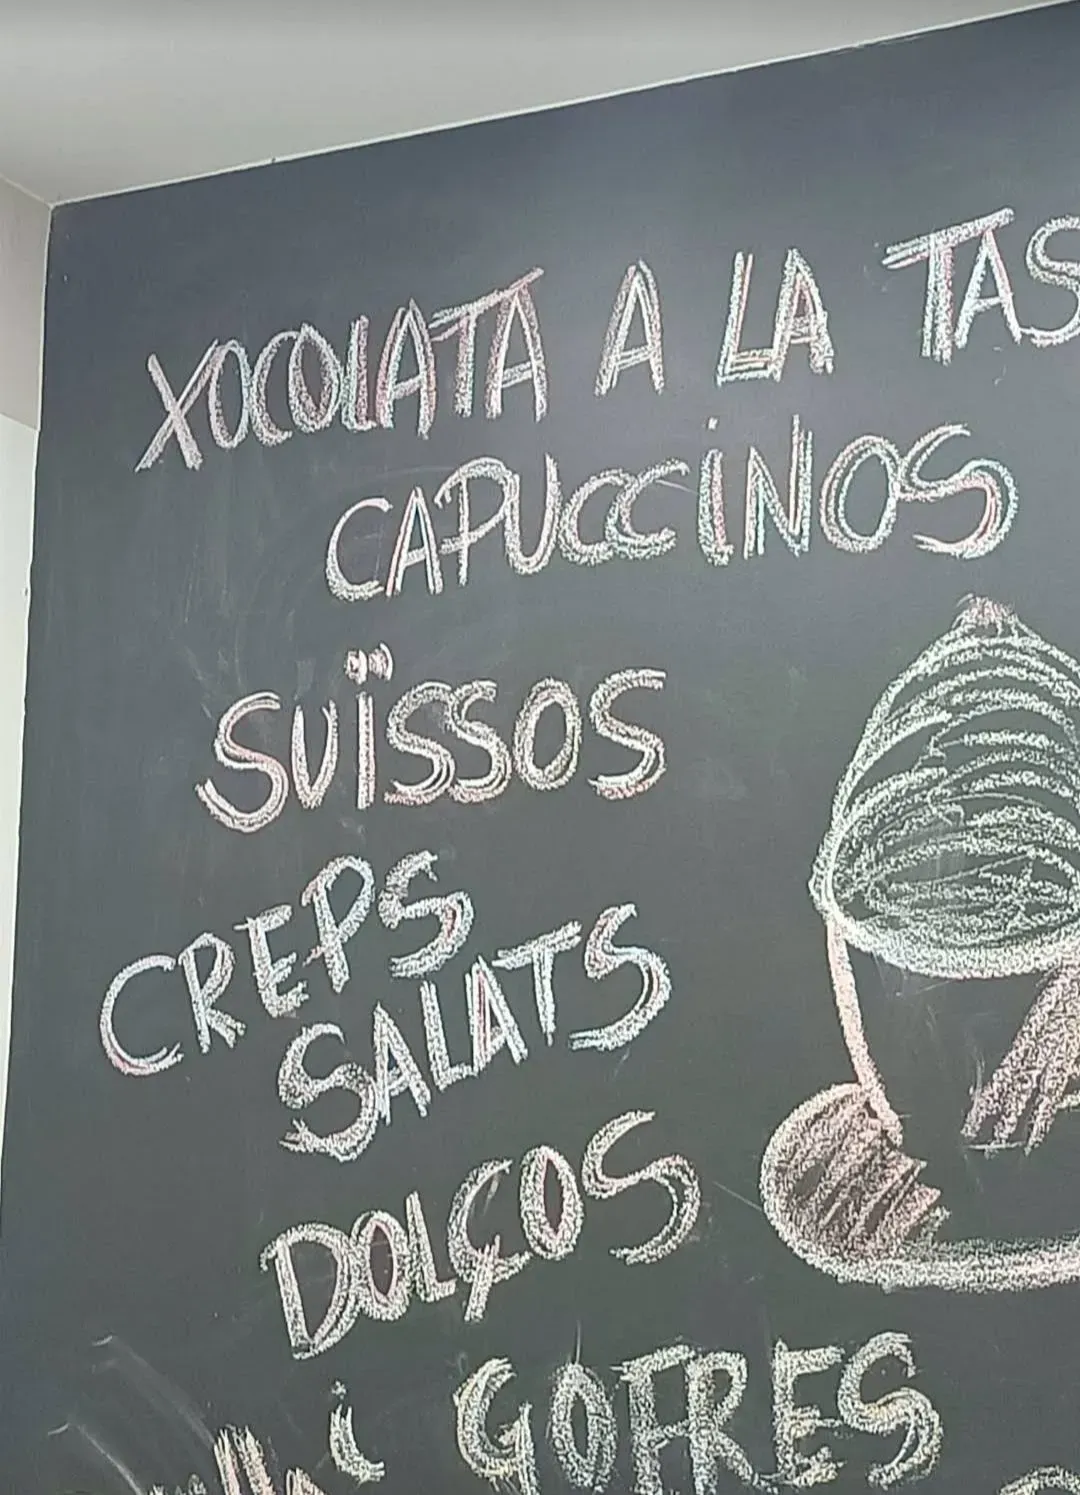 XOCOLATA A LA TAS
CAPUCCINOS
SUÏSSOS
CREPS
SALATS
DOLÇOS
i GOFRES